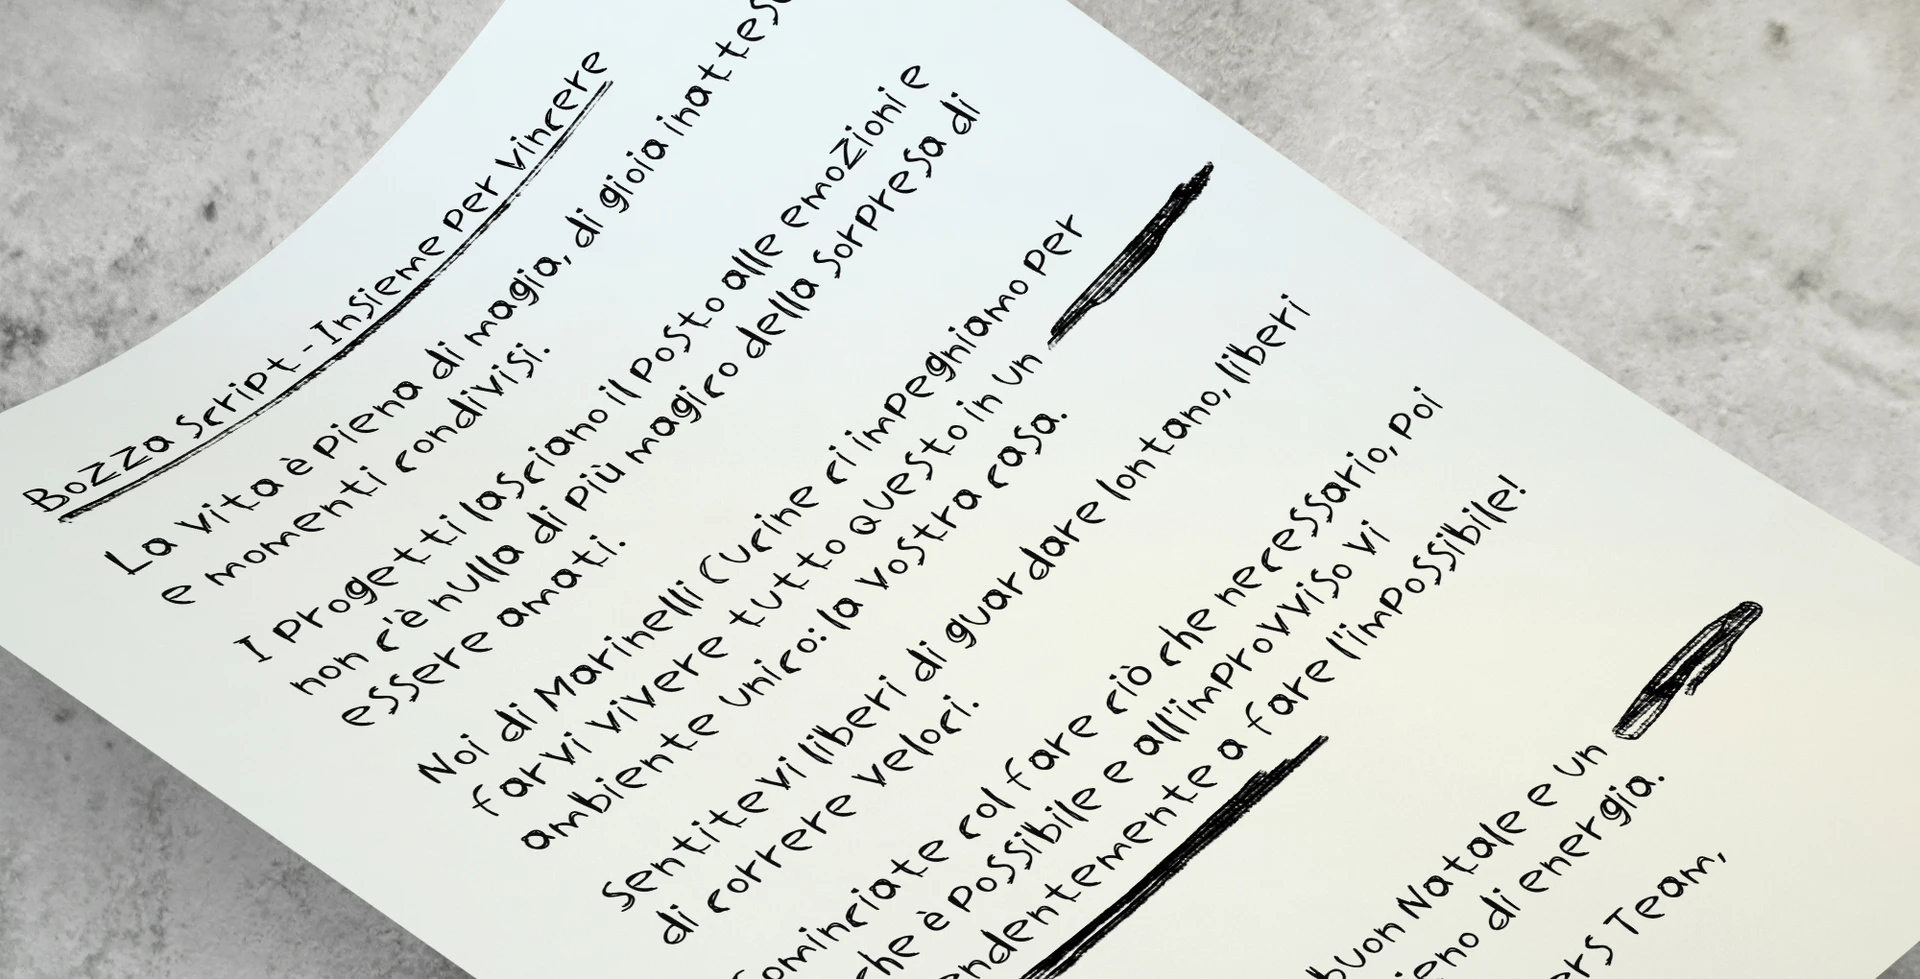 Bozza Script - Insieme per vincere
La vita è piena di magia, di gioia inattes
e momenti condivisi.
I progetti lasciano il posto alle emozioni e
non c'è nulla di più magico della sorpresa di
essere amati.
Noi di Marinelli Cucine ci impegniamo per
farvi vivere tutto questo in un
ambiente unico: la vostra casa.
Sentitevi liberi di guardare lontano, liberi
di correre veloci.
ominciate col fare ciò che necessario, poi
che è possibile e all'improvviso vi
ndentemente a fare l'impossibile!
buon Natale e un
ieno di energia.
ers Team,